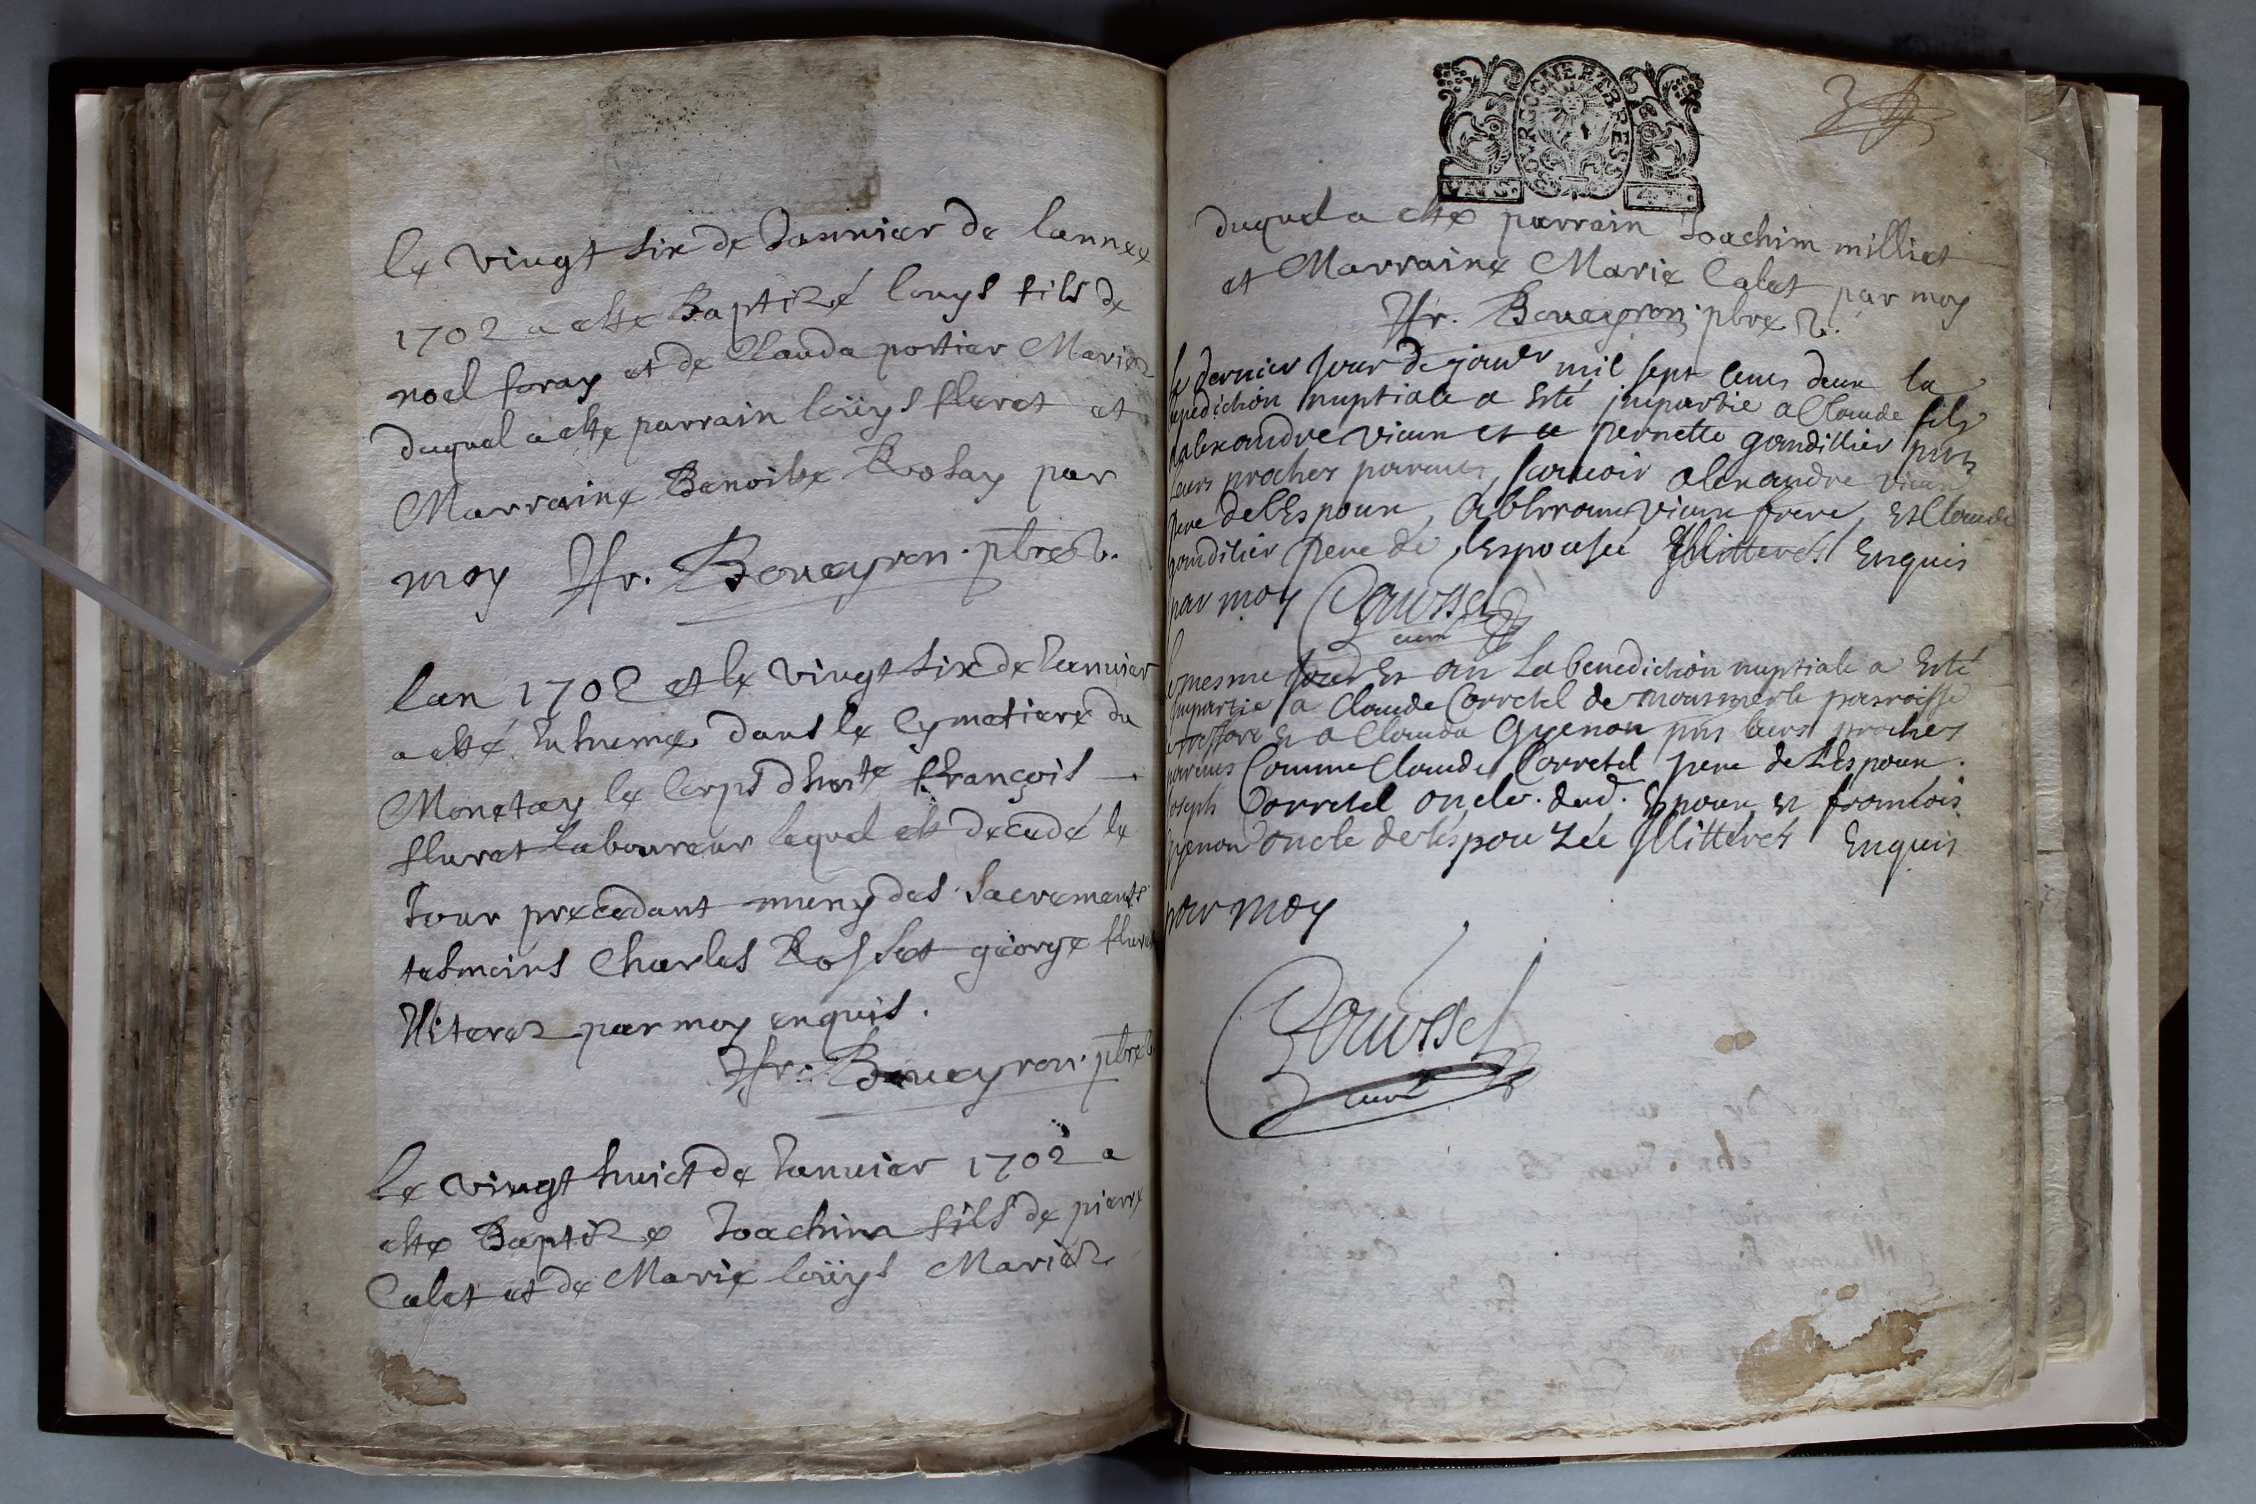 le vingt six de Januier de lannee
1702 a este Baptizé louys fils de
noel foray et de Clauda portier Mariez
duquel a este parrain loüys fluret et
Marraine Benoiste Rosay par
moy Fr. Boueyron pbre v.
lan 1702 et le vingt six de Januier
a esté Inhumé dans le Cymetiere du
Monetay le Corps dhonte françois
fluret laboureur lequel est decedé le
Jour precedant muny des Sacrements
tesmoins Charles Rosset george fluret
Iliterez par moy enquis.
Fr. Boueyron pbre v
Le vingt huict de Januier 1702 a
este Baptize Joachim fils de pierre
Calet et de Marie loüys Mariez
BOVRGOGNE ET BRESSE
duquel a este parrain Joachim milliet
et Marraine Marie Calet par moy
Fr. Boueyron pbre v.
le dernier Jour de janer mil sept cens deux la
benediction nuptiale a esté impartie a Claude fils
dalexandre vieux et a pernette gandillier pnts
leurs proches parents, scauoir alexandre vieux
pere de lEspoux, vieux frere, Et Claude
gandilier pere de lespousée Illitterés Enquis
par moy Goussel
curé
le mesme Jour et an La benediction nuptiale a Esté
impartie a Claude Corretel de parroisse
de treffort Et a Clauda Guenon pnts leurs proches
parens Comme Claude Corretel pere de lEspoux.
Joseph Corretel oncle dud. Espoux et francois
Guenon oncle de lespouzée Illitterés Enquis
par moy
Goussel
curé